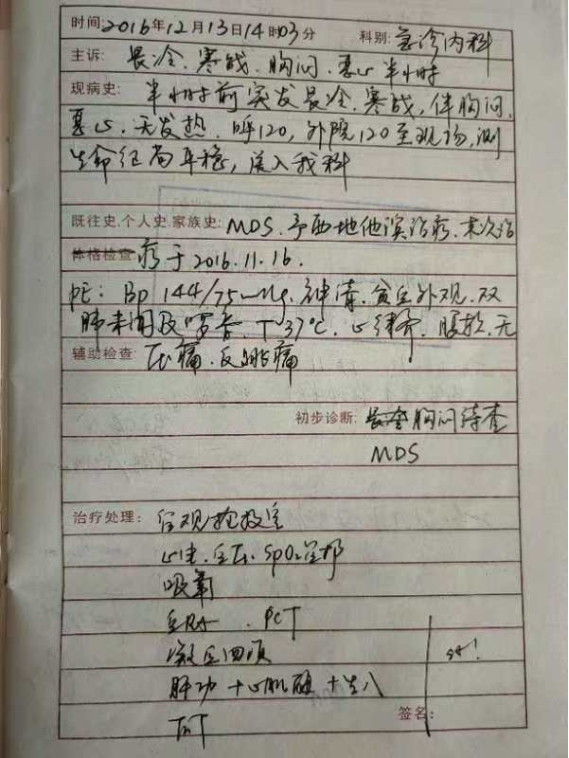 时间:2016年12月13日14时03分 科别:急诊内科
主诉: 畏冷、寒战、胸闷、恶心半小时
现病史: 半小时前突发畏冷、寒战,伴胸闷、
恶心,无发热,呼120,外院120至现场,测
生命征尚平稳,送入我科
既往史,个人史,家族史: MDS,予西地他滨治疗,末次治
体格检查: 疗于2016.11.16.
PE: Bp 144/75mmHg,神清,贫血外观,双
肺未闻及啰音,T 37℃,心律齐,腹软,无
辅助检查: 压痛、反跳痛
初步诊断: 胸闷待查
MDS
治疗处理: 留观抢救室
心电、血压、SpO2监护
吸氧
血RA、PCT
凝血四项
肝功+心肌酶+生八
st!
TnT
签名: